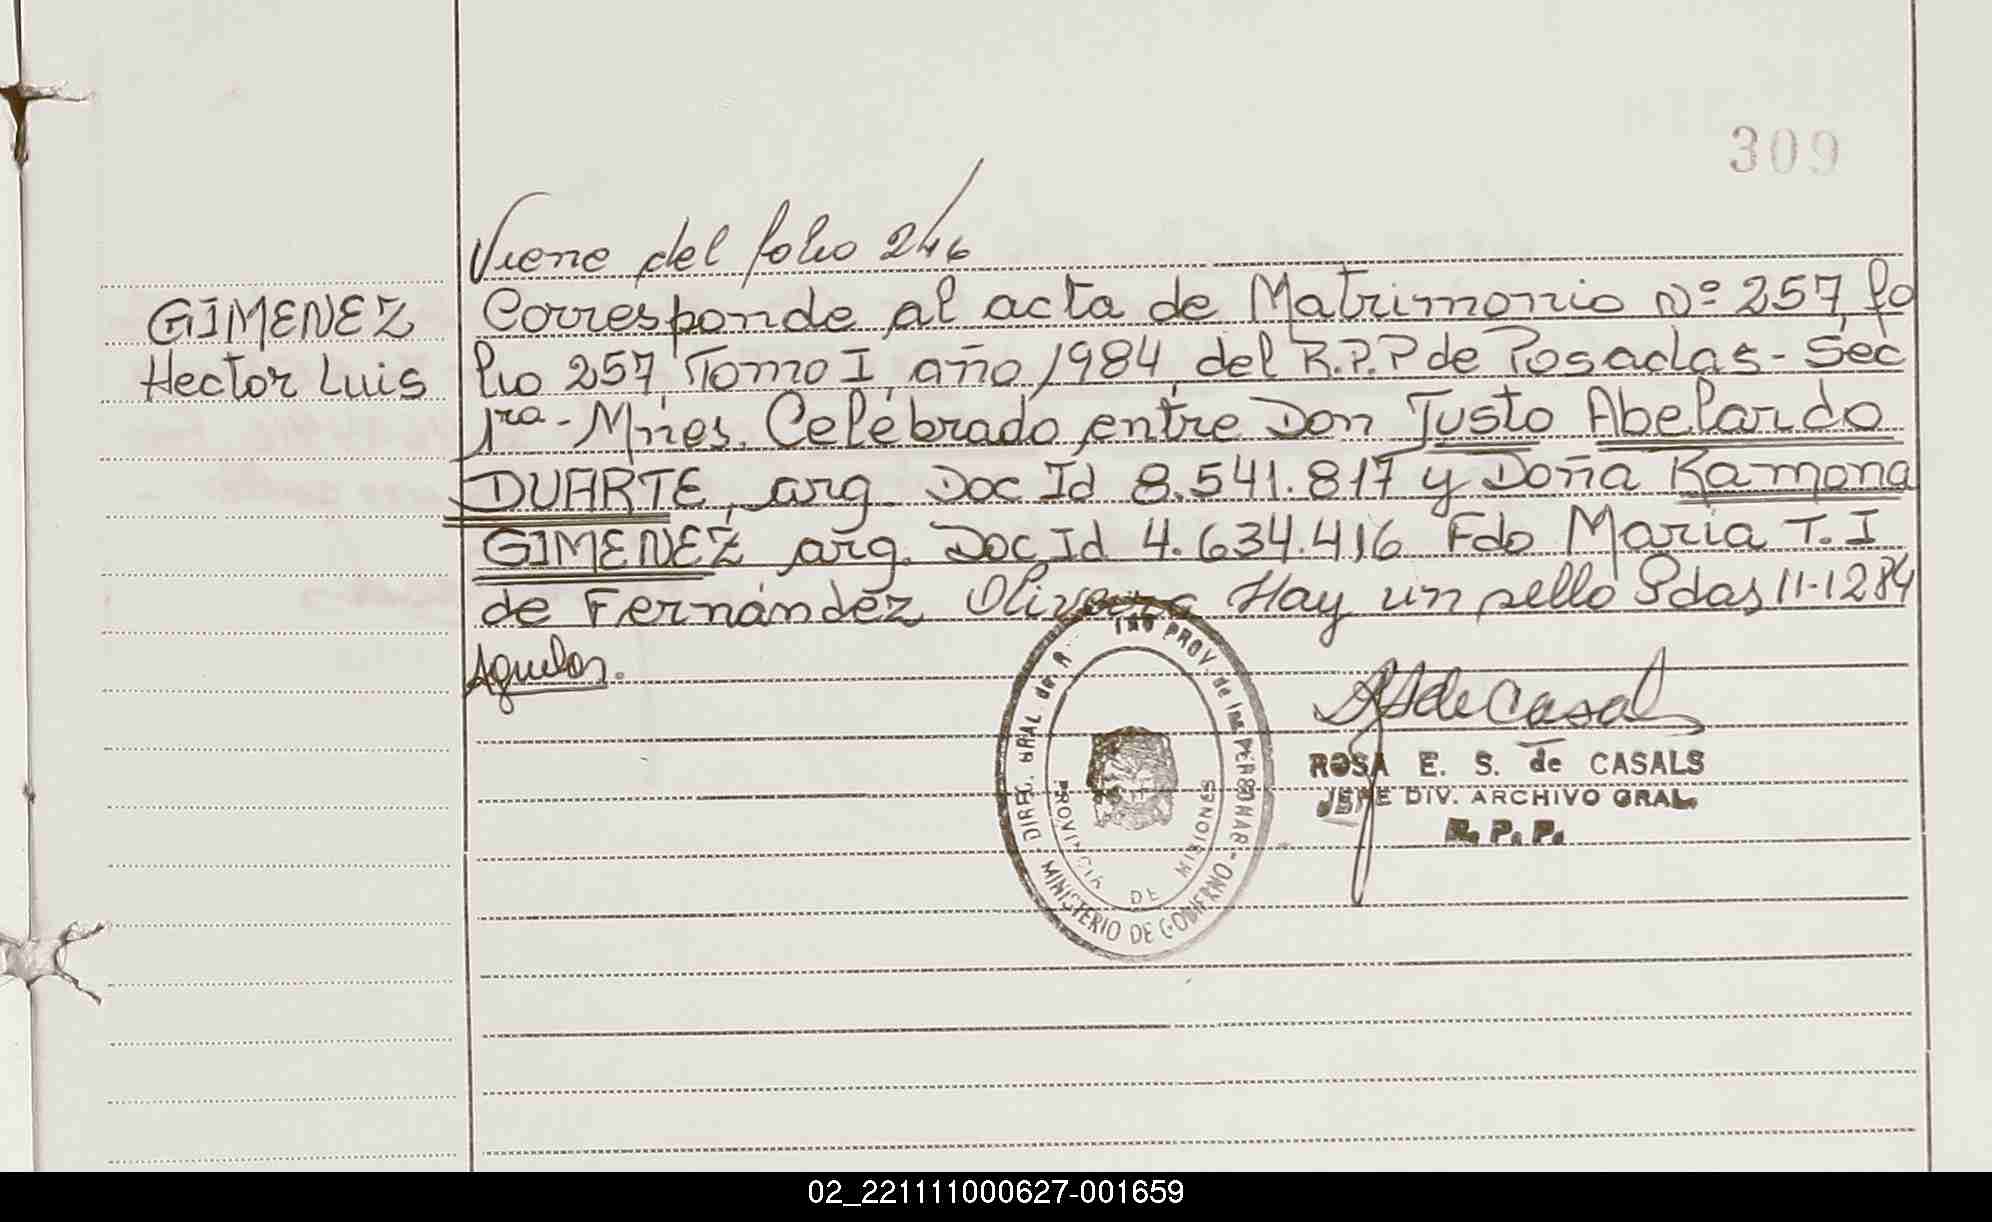 309
Viene del folio 246
GIMENEZ
Hector Luis
Corresponde al acta de Matrimonio Nº 257, fo
lio 257, Tomo I, año 1984, del R.P.P de Posadas - Sec
1ra - Mnes. Celebrado entre Don Justo Abelardo
DUARTE, arg. Doc Id 8.541.817 y Doña Ramona
GIMENEZ arg. Doc Id 4.634.416 Fdo Maria T. I
de Fernández Olivera Hay un sello Pdas 11-12 84
DIREC. GRAL. PROV. de PERS
MINISTERIO DE GOBIERNO
PROVINCIA DE MISIONES
de Casals
ROSA E. S. de CASALS
JEFE DIV. ARCHIVO GRAL.
R. P. P.
02_221111000627-001659